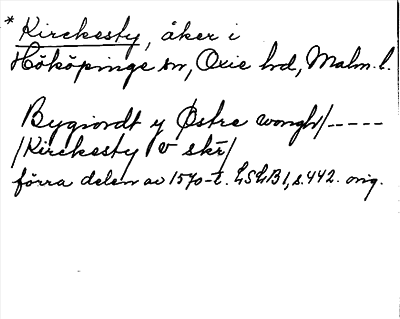 * Kirckesty, åker i
Hököpinge sn, Oxie hd, Malm. l.
Bygiordt y Østre wongh/-----
/Kirckesty v skr/
förra delen av 1570-t. LSLB1, s. 442. orig.